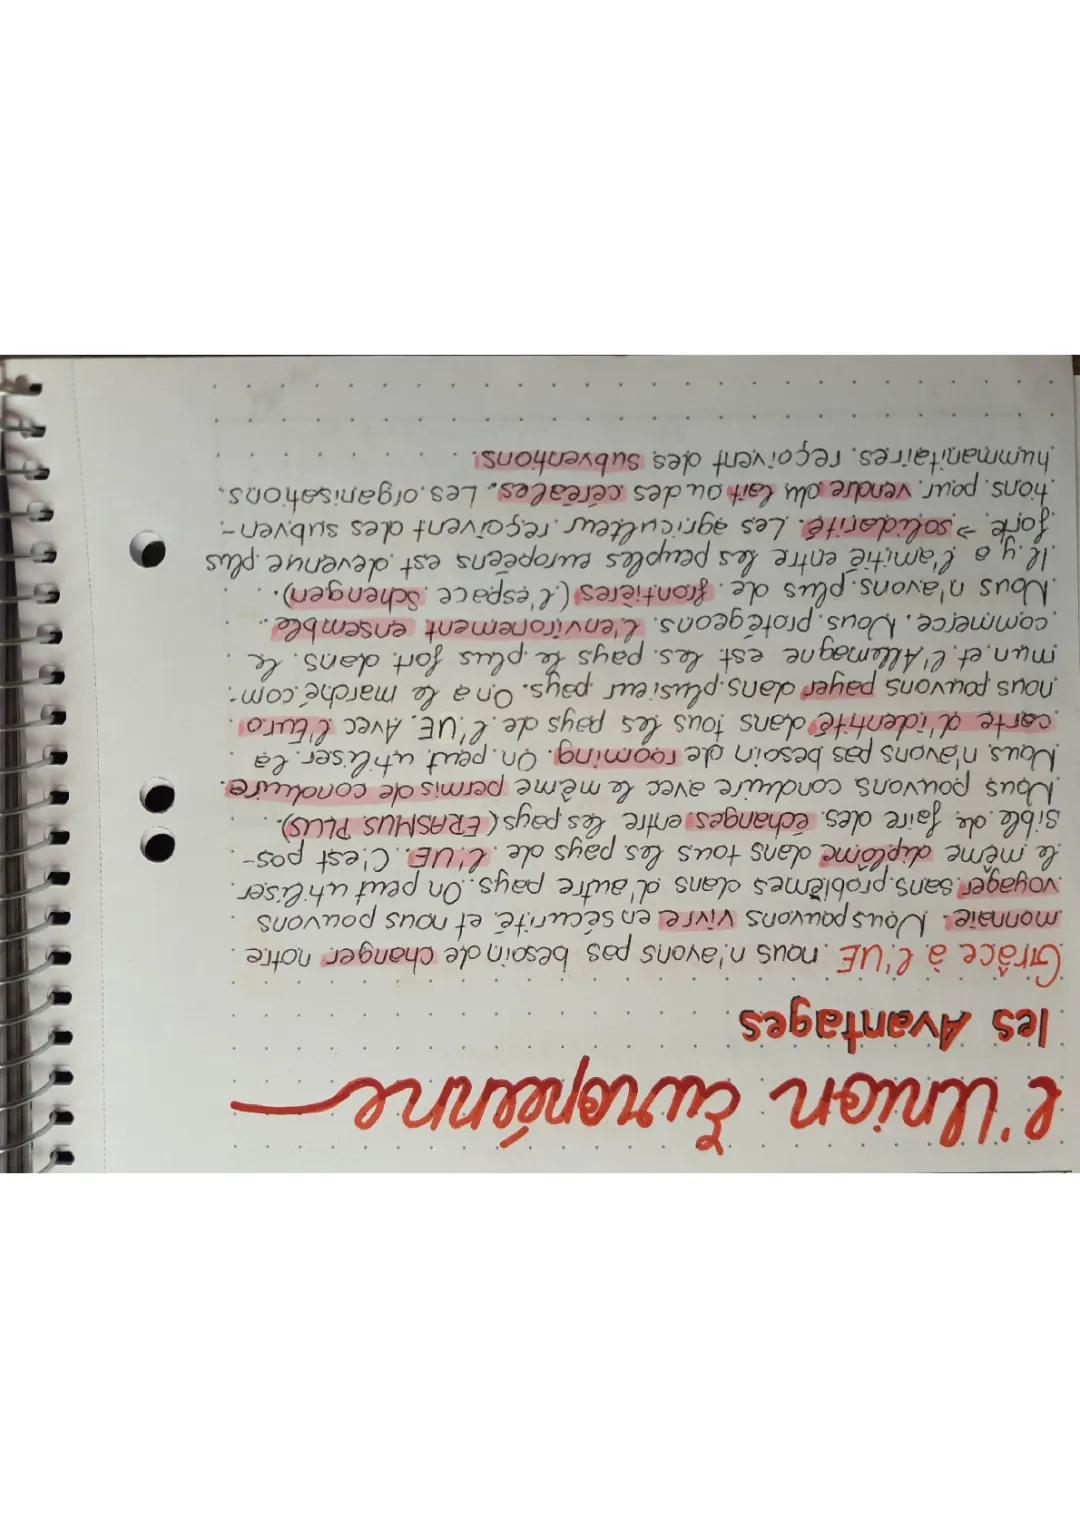 l'Union Européenne
les Avantages
Grâce à l'UE nous n'avons pas besoin de changer notre
monnaie. Nous pouvons vivre en sécurité et nous pouvons
voyager sans problèmes dans d'autre pays. On peut utiliser
le même diplôme dans tous les pays de l'UE. C'est pos-
sible de faire des échanges entre les pays (ERASMUS PLUS).
Nous pouvons conduire avec le même permis de conduire.
Nous n'avons pas besoin de rooming. On peut utiliser la
carte d'identité dans tous les pays de l'UE. Avec l'Euro
nous pouvons payer dans plusieur pays. On a le marché com-
mun et l'Allemagne est les pays le plus fort dans le
commerce. Nous protégeons l'environement ensemble.
Nous n'avons plus de frontières (l'espace Schengen).
Il y a l'amitié entre les peuples européens est devenue plus
forte → solidarité. Les agriculteur reçoivent des subven-
tions pour vendre du lait ou des céréales. Les organisations
hummanitaires reçoivent des subventions.